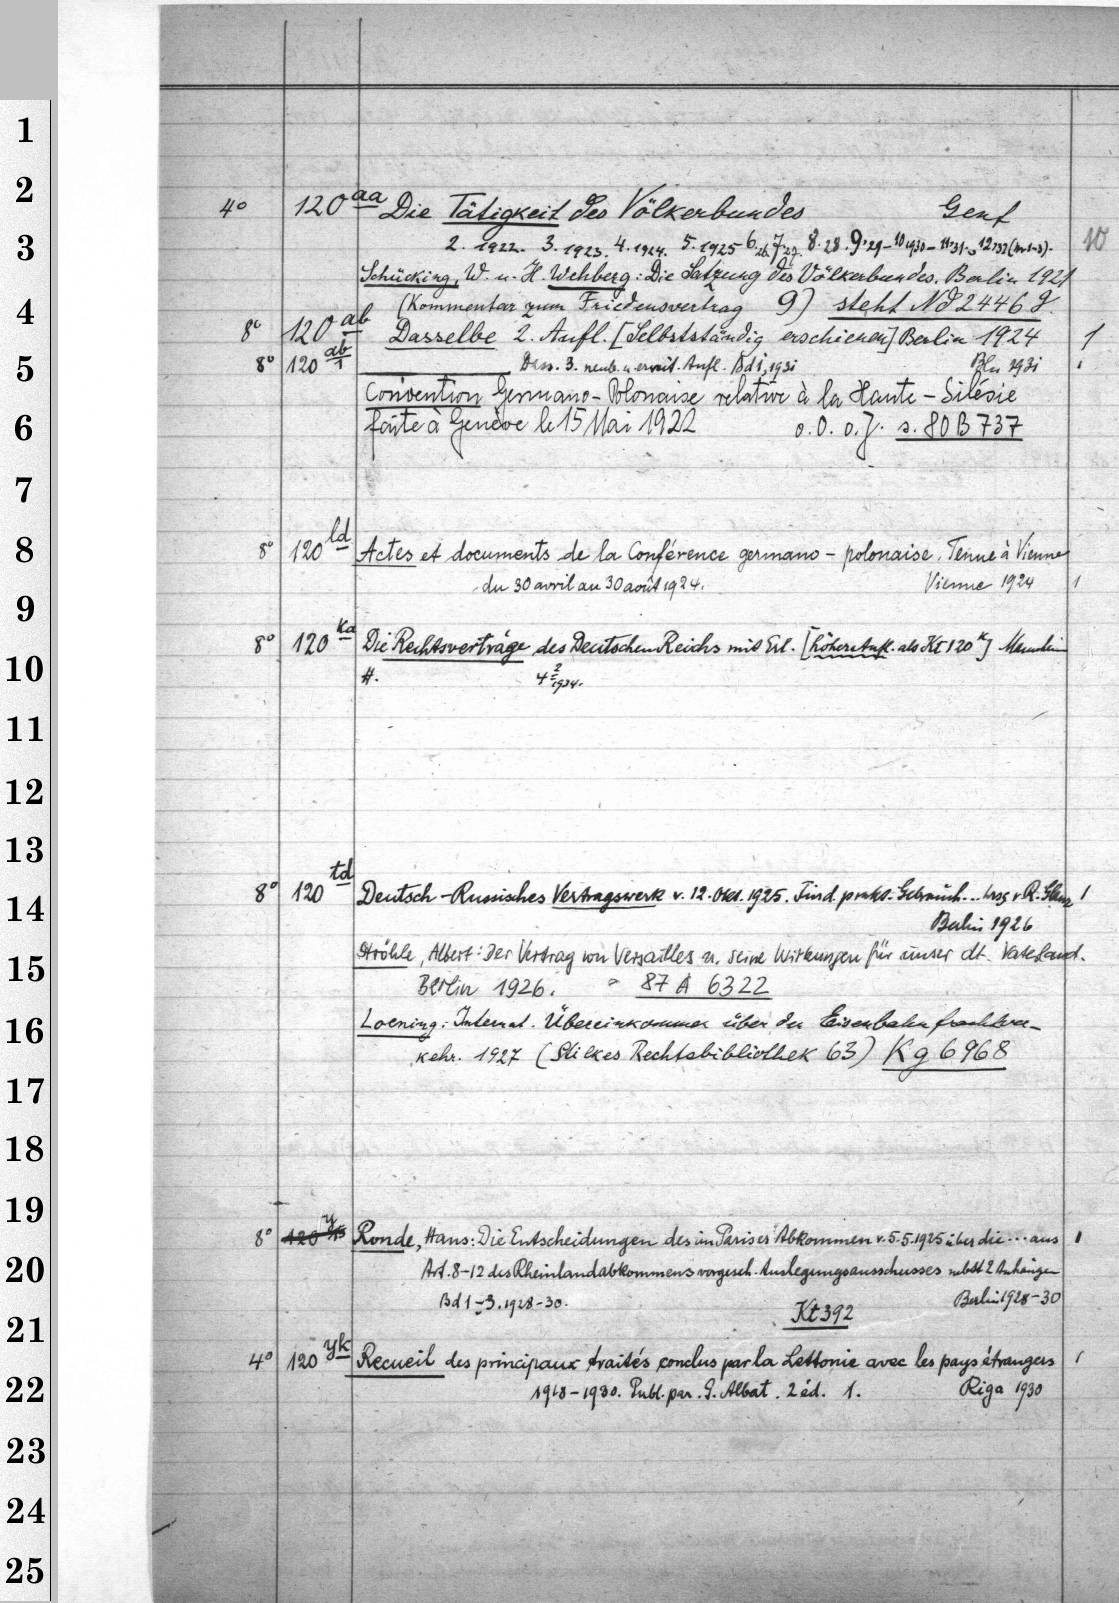 1
2
4° 120 aa Die Tätigkeit des Völkerbundes Genf
3
2. 1922. 3. 1923. 4. 1924. 5. 1925 6. 26. 7. 27. 8. 28. 9. 29 - 10 1930 - 11. 31. 12 1932 (Nr 1-3). 10
Schücking, W. u. H. Wehberg: Die Satzung des Völkerbundes. Berlin 1921
4
(Kommentar zum Friedensvertrag 9) steht
8° 120 ab Dasselbe 2. Aufl. [Selbstständig erschienen] Berlin 1924 1
5
8° 120 ab/1 Dass. 3. neub. u. erweit. Aufl. Bd 1, 1931 Bln 1931 1
Convention Germano-Polonaise relative à la Haute-Silésie
6
faite à Genève le 15 Mai 1922 o. O. o. J. s. 80 B 737
7
8
8° 120 ld Actes et documents de la Conférence germano-polonaise. Tenue à Vienne
du 30 avril au 30 août 1924. Vienne 1924 1
9
8° 120 ka Die Rechtsverträge des Deutschen Reichs mit Erl. [höhere Aufl. als Kt 120 k]
10
4 2 1924.
11
12
13
8° 120 td Deutsch-Russisches Vertragswerk v. 12. Okt. 1925. Für d. prakt. Gebrauch... hrsg v. R. 1
14
Berlin 1926
Ströhle, Albert: Der Vertrag von Versailles u. seine Wirkungen für unser dt. Vaterland.
15
Berlin 1926. = 87 A 6322
16
Loening: Internat. Übereinkommen über den Eisenbahnfrachtver-
kehr. 1927 (Stilkes Rechtsbibliothek 63) Kg 6968
17
18
19
8° 120 y Ronde, Hans: Die Entscheidungen des im Pariser Abkommen v. 5.5.1925 über die ... aus 1
20
Art. 8-12 des Rheinlandabkommens vorgeseh. Auslegungsausschusses nebst 2 Anhängen
Bd 1-3. 1928-30. Kt 392 Berlin 1928-30
21
4° 120 yk Recueil des principaux traités conclus par la Lettonie avec les pays étrangers 1
22
1918-1930. Publ. par. G. Albat. 2 éd. 1. Riga 1930
23
24
25